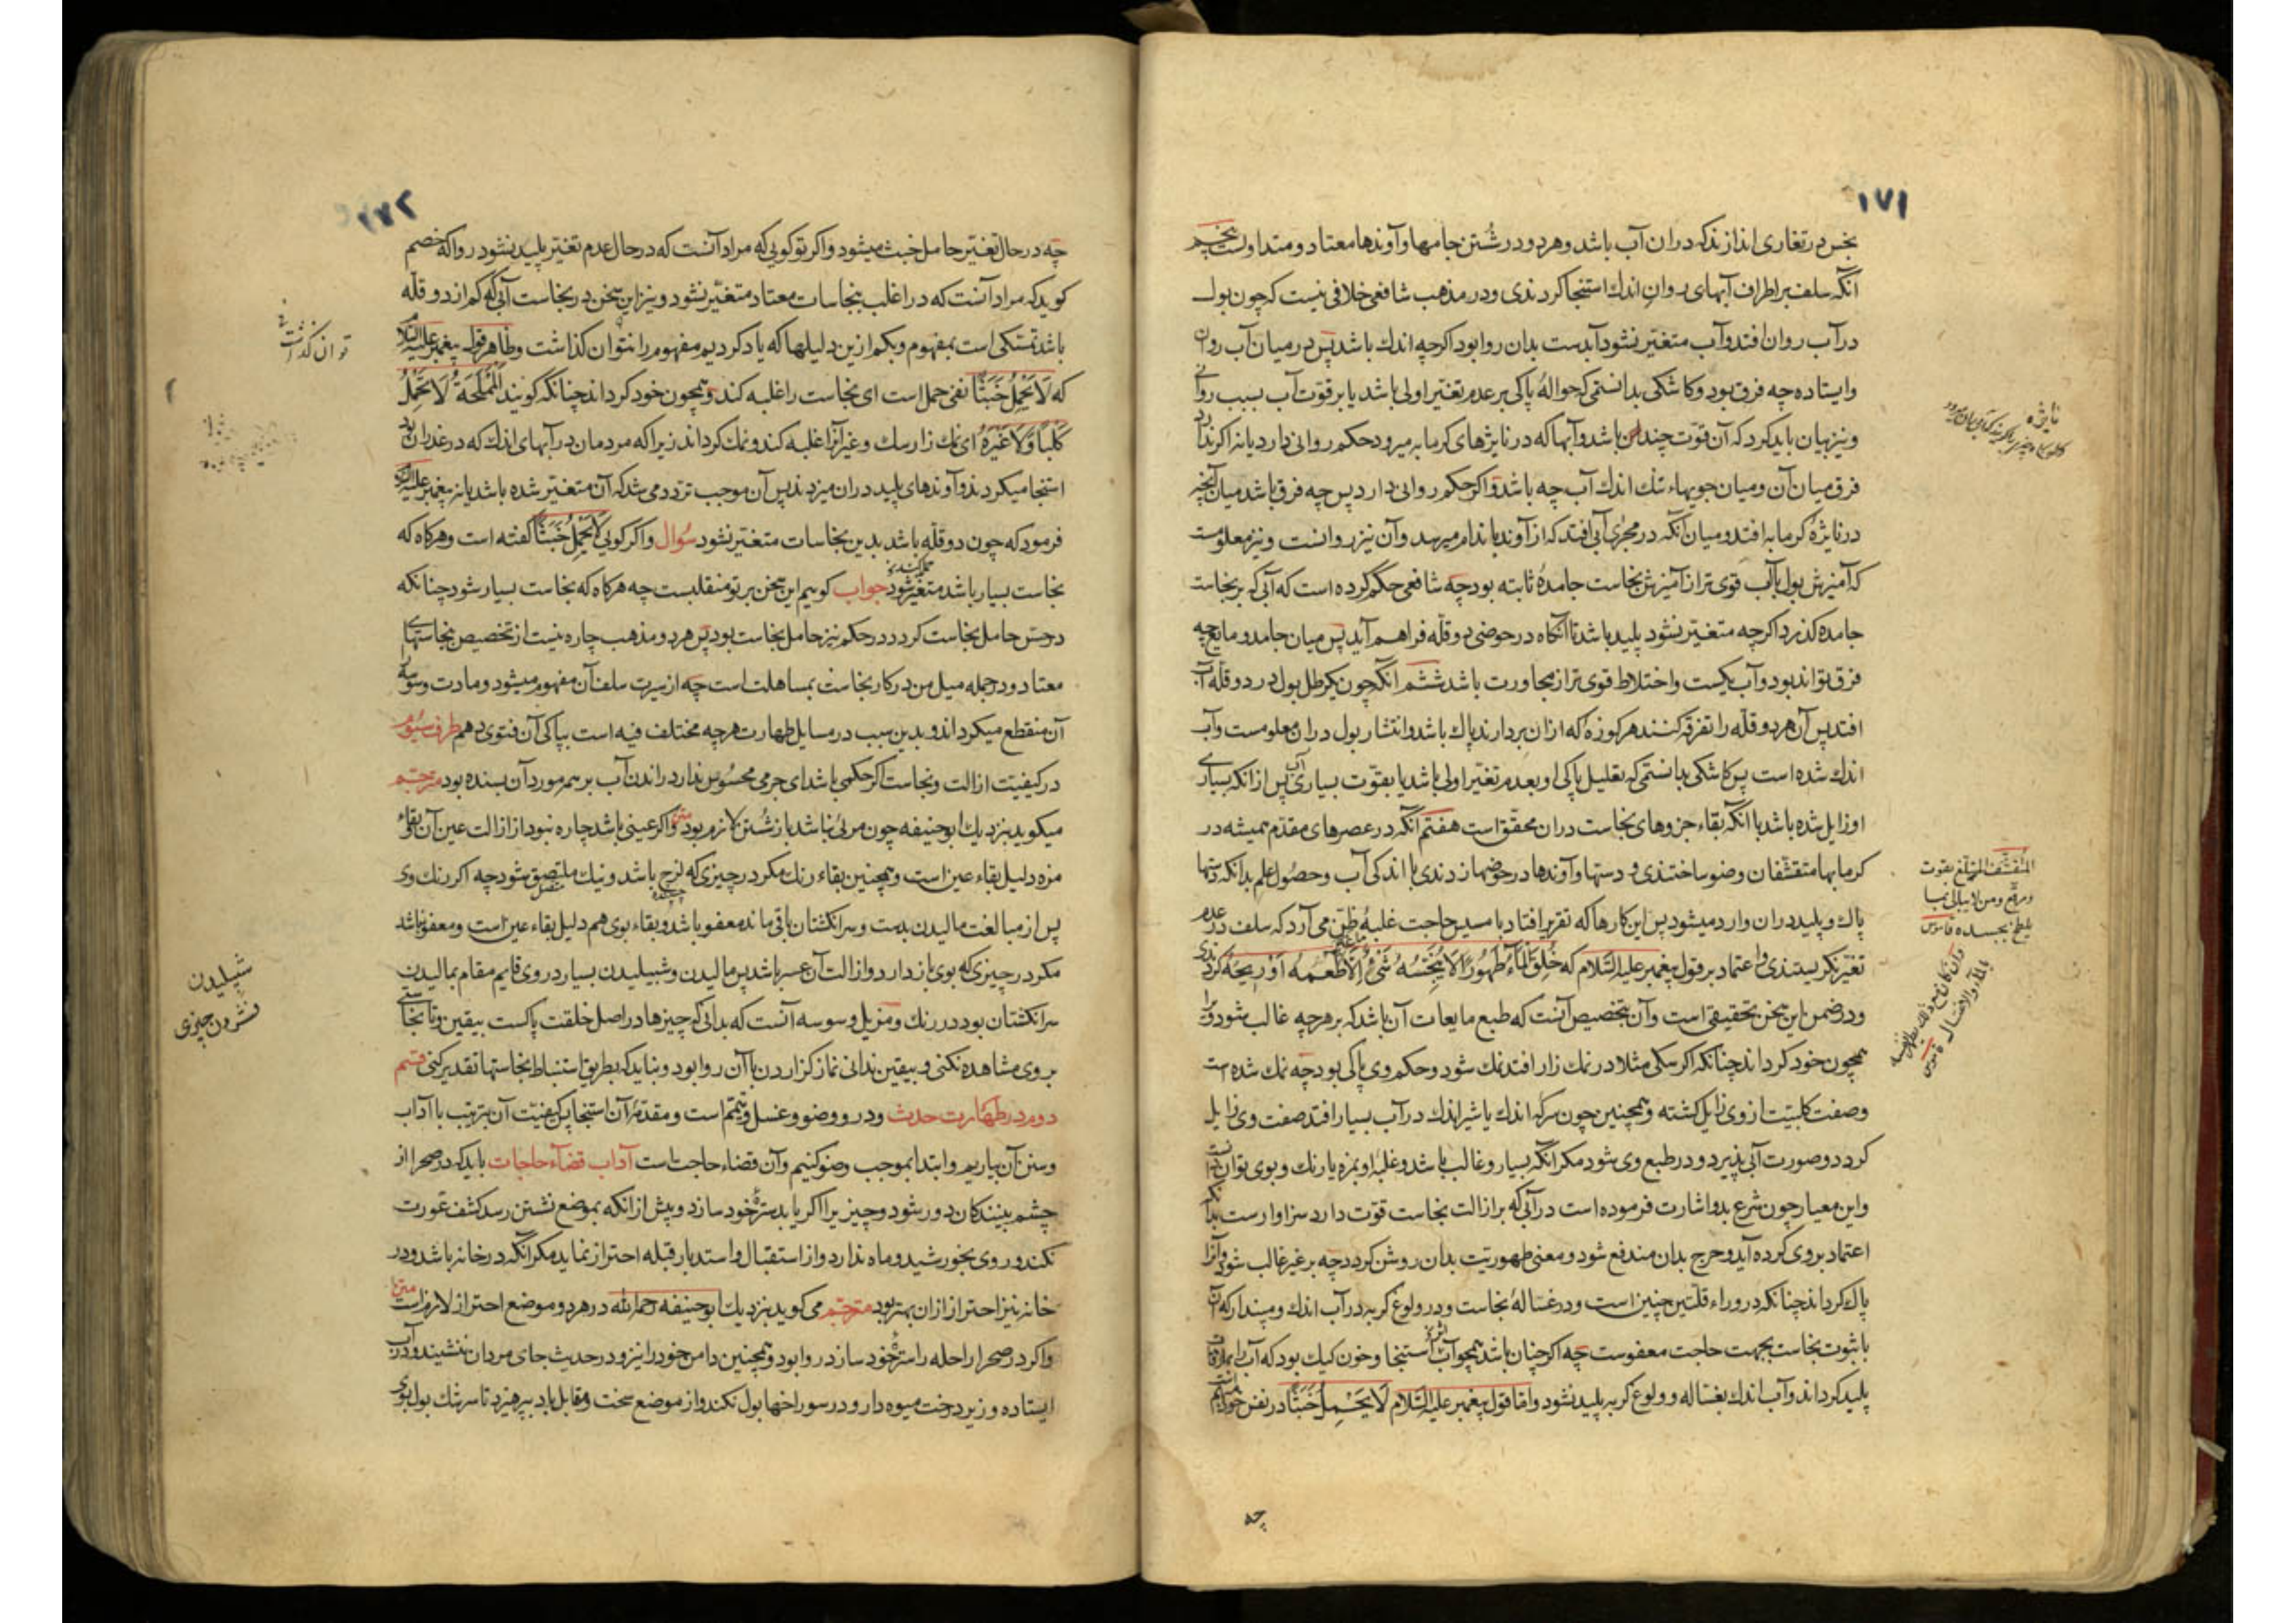 ۱۷۱
نجس در تغاری اندازند که دران آب باشد و هر دو در شُستن جامها و آوندها معتاد و متداولست پنجم
آنکه سلف بر اطراف آبهای روان اندك استنجا کردندی و در مذهب شافعی خلافی نیست که چون بول
در آب روان افتد و آب متغیّر نشود آبدست بدان روا بود اکرچه اندك باشد پس در میان آب روان
و ایستاده چه فرق بود و کاشکی بدانستمی که حوالهٔ پاکی بر عدم تغیّر اولی باشد یا بر قوّت آب بسبب روانی
و نیز بیان باید کرد که آن قوّت چند باشد و آبها که در نایژهای کرمابه میرود حکم روانی دارد یا نه اکر ندارد
فرق میان آن و میان جویهاء تنك اندك آب چه باشد و اکر حکم روانی دارد پس چه فرق باشد میان آنچه
در نایژهٔ کرمابه افتد و میان آنکه در مجری آبی افتد که از آوند باندام میرسد و آن نیز روانست و نیز معلومست
که آمیزش بول بآب قوی تر از آمیزش نجاست جامدهٔ ثابته بود چه شافعی حکم کرده است که آبی که بر نجاست
جامده کذرد اکرچه متغیّر نشود پلید باشد تا آنگاه در حوضی دو قلّه فراهم آید پس میان جامد و مایع چه
فرق تواند بود و آب یکیست و اختلاط قوی تر از مجاورت باشد ششم آنکه چون یکرطل بول در دو قلّه آب
افتد پس آن هر دو قلّه را تفرقه کنند هر کوزه که ازان بردارند پاك باشد و انتشار بول دران معلومست و آب
اندك شده است پس کاشکی بدانستمی که تعلیل پاکی او بعدم تغیّر اولی باشد یا بقوّت بسیاری آب پس از انکه بسیاری
او زایل شده باشد با آنکه بقاء جزوهای نجاست دران محقّق است هفتم آنکه در عصرهای مقدّم همیشه در
کرمابها متقشّفان وضو ساختندی و دستها و آوندها در حوضها زدندی با اندکی آب و حصول علم بدانکه دستها
پاك و پلید دران وارد میشود پس این کارها که تقریر افتاد با مسیس حاجت غلبهٔ ظن می آرد که سلف در عدم
تغیّر نکریستندی و اعتماد بر قول پیغمبر علیه السّلام که خُلِقَ الْمَاءُ طَهُورًا لَا يُنَجِّسُهُ شَيْءٌ اِلَّا طَعْمَهُ اَوْ رِيحَهُ کردندی
و در ضمن این سخن تحقیقی است و آن تخصیص آنست که طبع مایعات آن باشد که بر هرچه غالب شود ویرا
همچون خود کرداند چنانکه اکر سکی مثلا در نمك زار افتد نمك شود و حکم وی پاکی بود چه نمك شده است
و صفت کلبیّت از وی زایل کشته و همچنین چون سرکهٔ اندك یا شیر اندك در آب بسیار افتد صفت وی زایل
کردد و صورت آبی پذیرد و در طبع وی شود مکر آنکه بسیار و غالب باشد و غلبهٔ او بمزه یا رنك و بوی توان دانست
و این معیار چون شرع بدو اشارت فرموده است در آبی که بر ازالت نجاست قوّت دارد سزاوارست بدانکه
اعتماد بر وی کرده آید و حرج بدان مندفع شود و معنی طهوریّت بدان روشن کردد چه بر غیر غالب شود و آنرا
پاك کرداند چنانکه در وراء قلّتین چنین است و در غسالهٔ نجاست و در ولوغ کربه در آب اندك و مپندار که آن
با ثبوت نجاست بجهت حاجت معفوست چه اکر چنان باشد همچو آب استنجا و خون کیك بود که آب را بملاقات
پلید کرداند و آب اندك بغساله و ولوغ کربه پلید نشود و امّا قول پیغمبر علیه السّلام لَا يَحْمِلُ خَبَثًا در نفس خود مبهم است
چه
نایژه
المتقشّف المتبلّغ بقوت
ومرقّع ومن لا یبالی بما
یلطّخ بجسده قاموس
۱۷۲
چه در حال تغیّر حامل خبث میشود و اکر تو کویی که مراد آنست که در حال عدم تغیّر پلید نشود روا که خصم
کوید که مراد آنست که در اغلب بنجاسات معتاد متغیّر نشود و نیز این سخن در نجاست آبی که کم از دو قلّه
باشد تمسّکی است بمفهوم و بکم ازین دلیلها که یاد کردیم مفهوم را نتوان کذاشت و ظاهر قول پیغمبر علیه السلام
که لَا يَحْمِلُ خَبَثًا نفی حمل است ای نجاست را غلبه کند و همچون خود کرداند چنانکه کویند اَلْمَمْلَحَةُ لَا تَحْمِلُ
كَلْبًا وَلَا غَيْرَهُ ای نمك زار سك و غیر آنرا غلبه کند و نمك کرداند زیرا که مردمان در آبهای اندك که در غدران بود
استنجا میکردند و آوندهای پلید دران میزدند پس آن موجب تردّد می شد که آن متغیّر شده باشد یا نه پیغمبر علیه السلام
فرمود که چون دو قلّه باشد بدین نجاسات متغیّر نشود سُوال و اکر کویی لَا يَحْمِلُ خَبَثًا کفته است و هرکاه که
نجاست بسیار باشد متغیّر شود جواب کویم این سخن بر تو منقلبست چه هرکاه که نجاست بسیار شود چنانکه
در حس حامل نجاست کردد در حکم نیز حامل نجاست بود پس هر دو مذهب چاره نیست از تخصیص نجاستهای
معتاد و در جمله میل من در کار نجاست بمساهلت است چه از سیرت سلف آن مفهوم میشود و مادت وسوسه
آن منقطع میکرداند و بدین سبب در مسایل طهارت هرچه مختلف فیه است بپاکی آن فتوی دهم طرف سیوم
در کیفیّت ازالت و نجاست اکر حکمی باشد ای جرمی محسوس ندارد راندن آب بر همه مورد آن بسنده بود مترجم
میکوید بنزدیك ابوحنیفه چون مرئی نباشد باز شُستن لازم بود متن و اکر عینی باشد چاره نبود از ازالت عین آن و بقاء
مزه دلیل بقاء عین است و همچنین بقاء رنك مکر در چیزی که لزج باشد و نیك ملتصق شود چه اکر رنك وی
پس از مبالغت مالیدن بدست و سر انکشتان باقی ماند معفو باشد و بقاء بوی هم دلیل بقاء عین است و معفو نباشد
مکر در چیزی که بوی باز دارد و ازالت آن عسر باشد پس مالیدن و شپیلیدن بسیار در وی قایم مقام بمالیدن
سر انکشتان بود در رنك و مزیل وسوسه آنست که بدانی که چیزها در اصل خلقت پاکست بیقین و تا نجاستی
بر وی مشاهده نکنی و بیقین ندانی نماز کزاردن با آن روا بود و نباید که بطریق استنباط نجاستها تقدیر کنی قسم
دوم در طهارت حدث و درو وضو و غسل و تیمّم است و مقدّمهٔ آن استنجا پس کیفیّت آن بترتیب با آداب
و سنن آن بیاریم و ابتدا بموجب وضو کنیم و آن قضاء حاجت است آداب قضآء حاجات باید که در صحرا از
چشم بینندکان دور شود و چیزی را اکر یابد سترهٔ خود سازد و پیش از انکه بموضع نشستن رسد کشف عورت
نکند و روی بخورشید و ماه ندارد و از استقبال و استدبار قبله احتراز نماید مکر آنکه در خانه باشد و در
خانه نیز احتراز ازان بهتر بود مترجم می کوید بنزدیك ابوحنیفه رحمه الله در هر دو موضع احتراز لازم است متن
و اکر در صحرا راحله را سترهٔ خود سازد روا بود و همچنین دامن خود را نیز و در حدیث جای مردان ننشیند و در آب
ایستاده و زیر درخت میوه دار و در سوراخها بول نکند و از موضع سخت و مقابل باد بپرهیزد تا سرشك بول بوی
توان کذاشت
شپیلیدن
فشردن چیزی